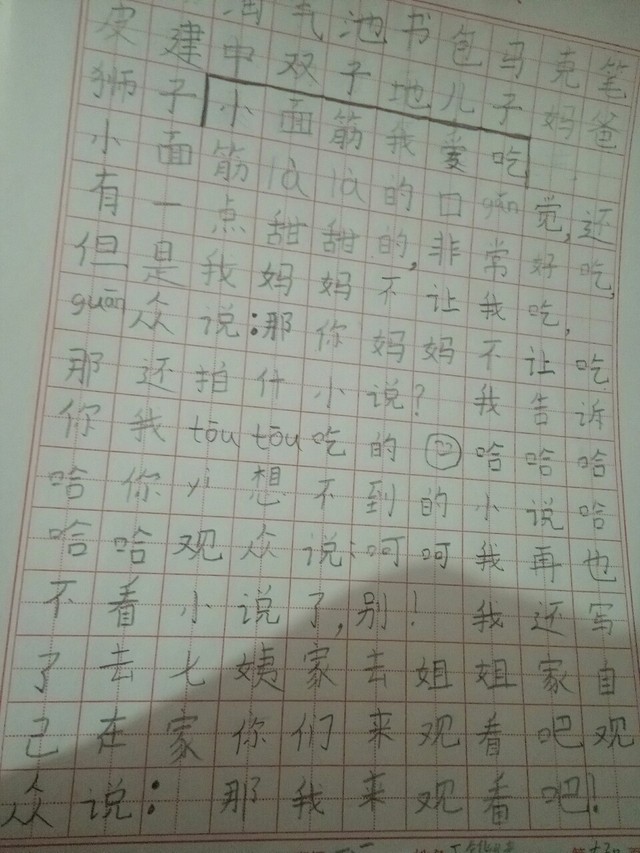 淘气池书包马克笔
皮建中双子地儿子妈爸
狮子小面筋我爱吃
小面筋là là的口gǎn觉,还
有一点甜甜的,非常好吃,
但是我妈妈不让我吃,
guān众说:那你妈妈不让吃
那还拍什小说?我告诉
你我tōu tōu吃的哈哈哈
哈你yì想不到的小说哈
哈哈观众说:呵呵我再也
不看小说了,别!我还写
了去七姨家去姐姐家自
己在家你们来观看吧观
众说:那我来观看吧!